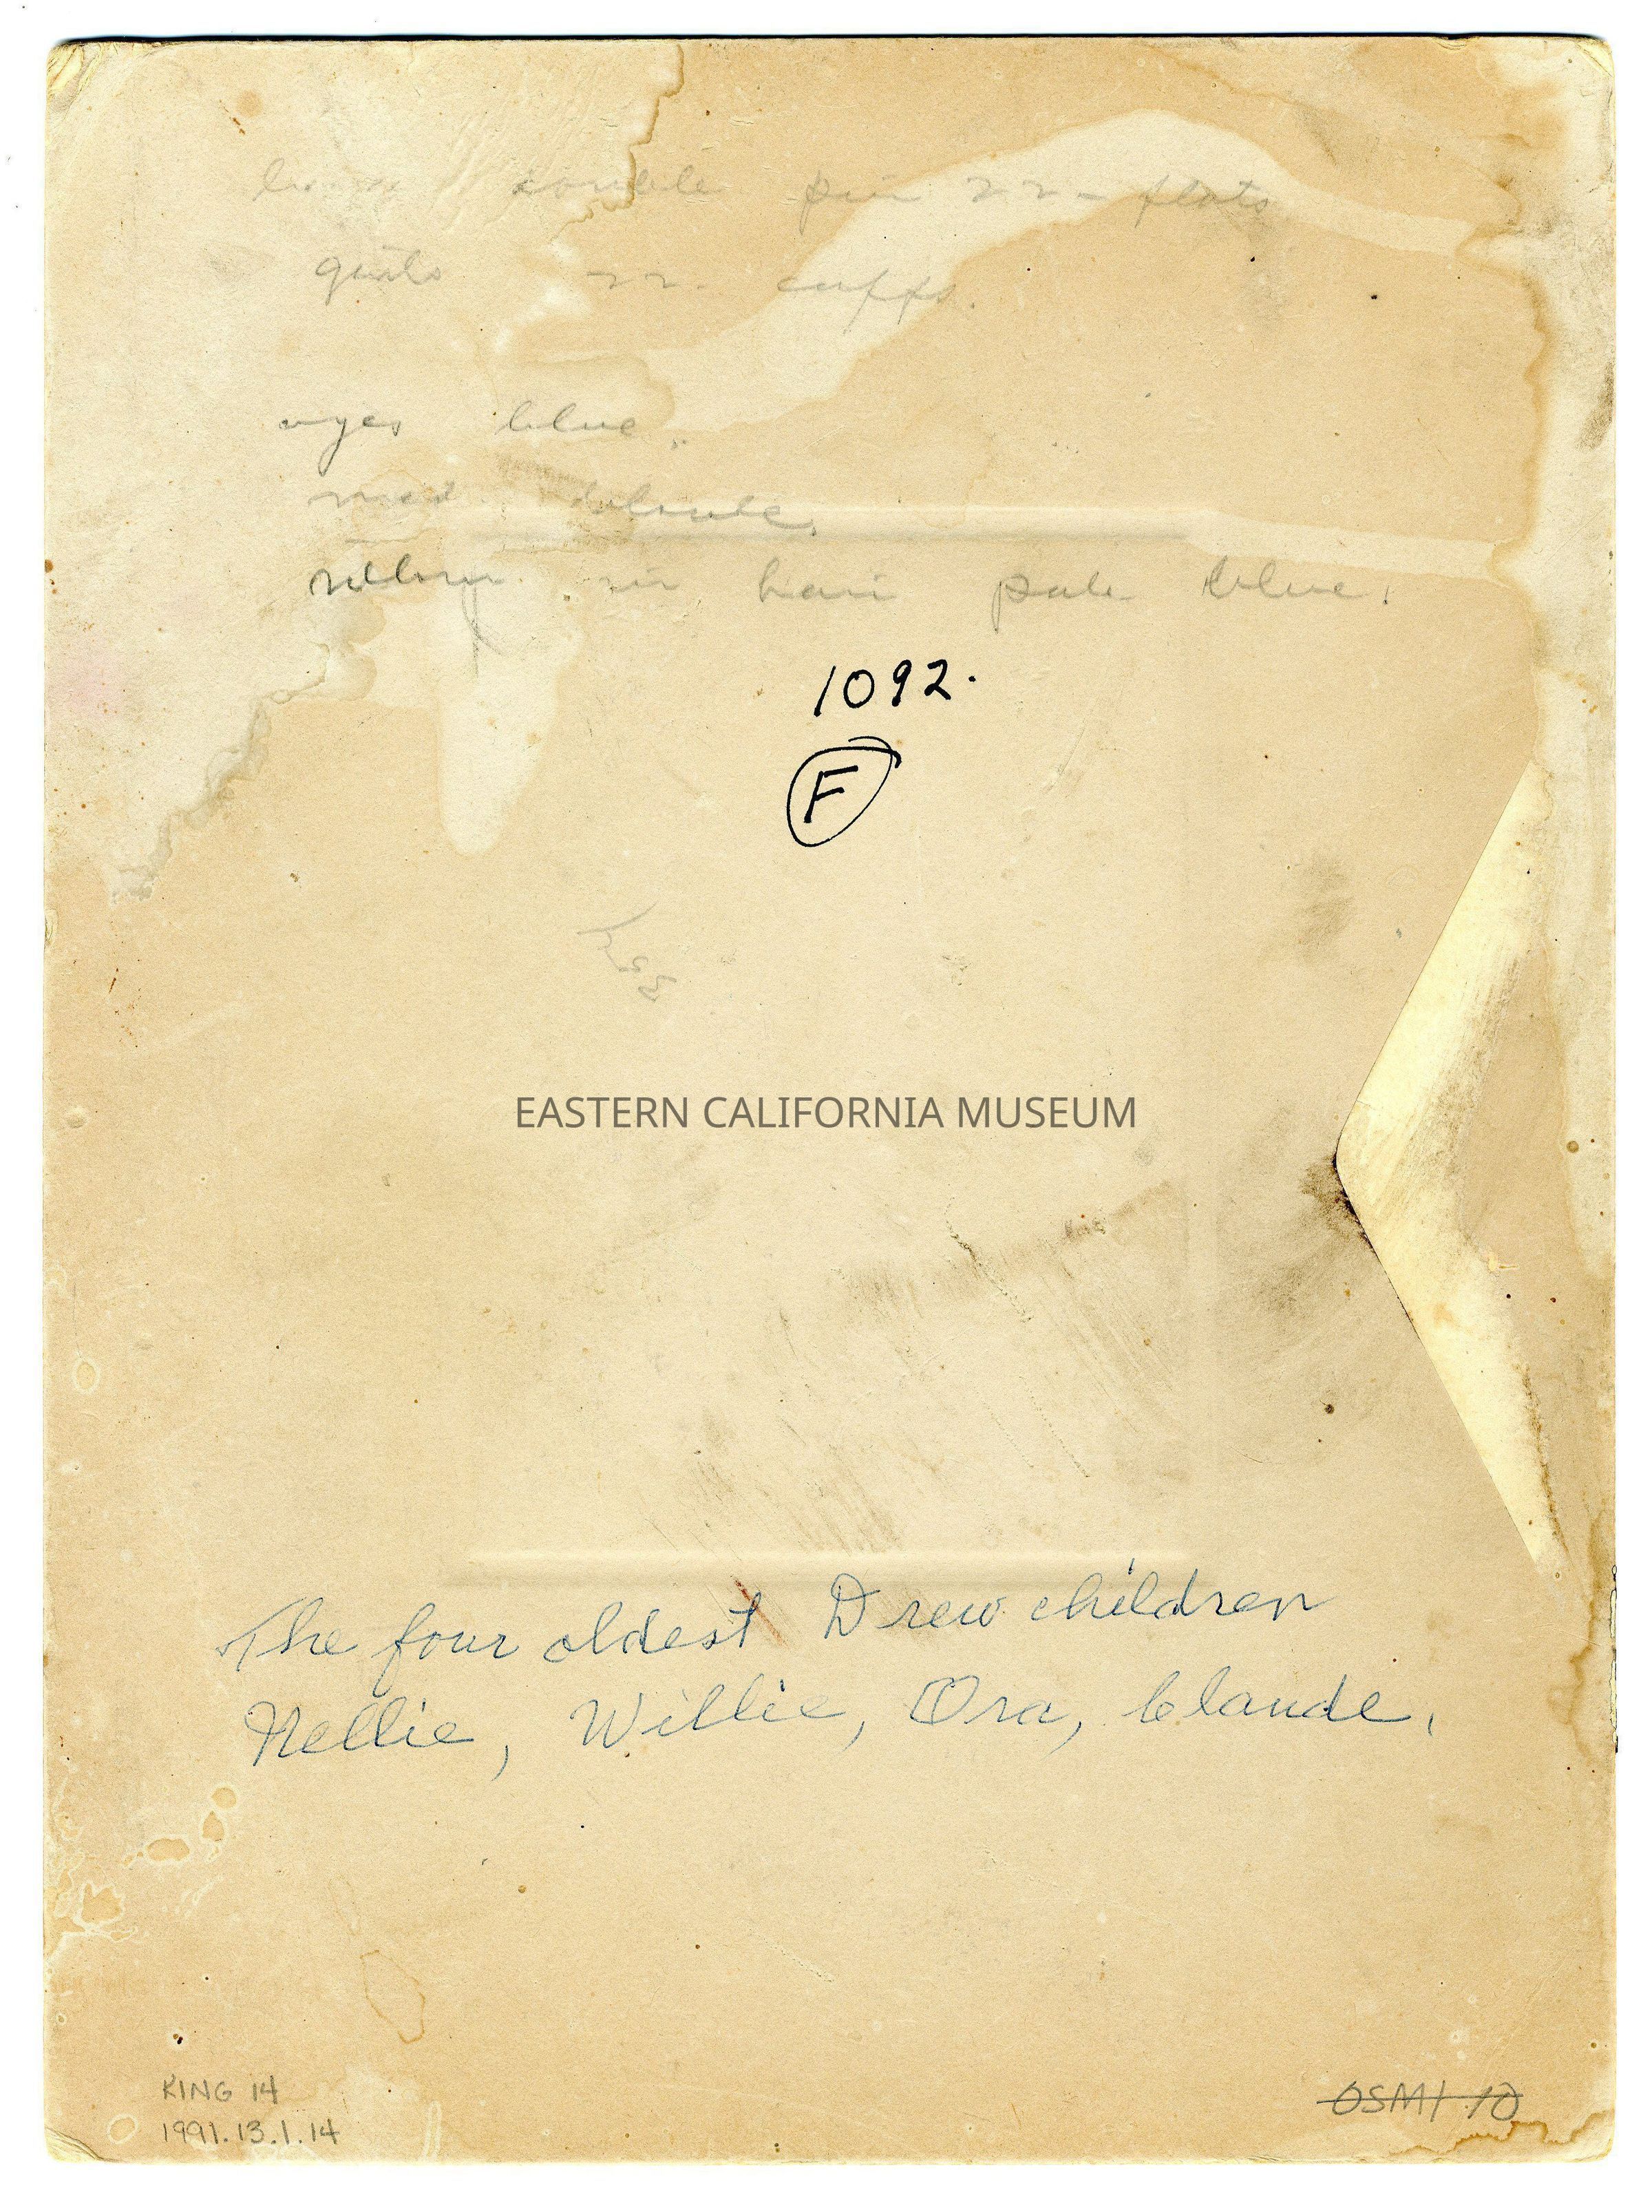 double pin - flats
cuffs.
eyes blue.
med blonde.
ribbon in hair pale blue.
1092.
F
EASTERN CALIFORNIA MUSEUM
The four oldest Drew children
Nellie, Willie, Ora, Claude.
KING 14
1991.13.1.14
OSMI 10